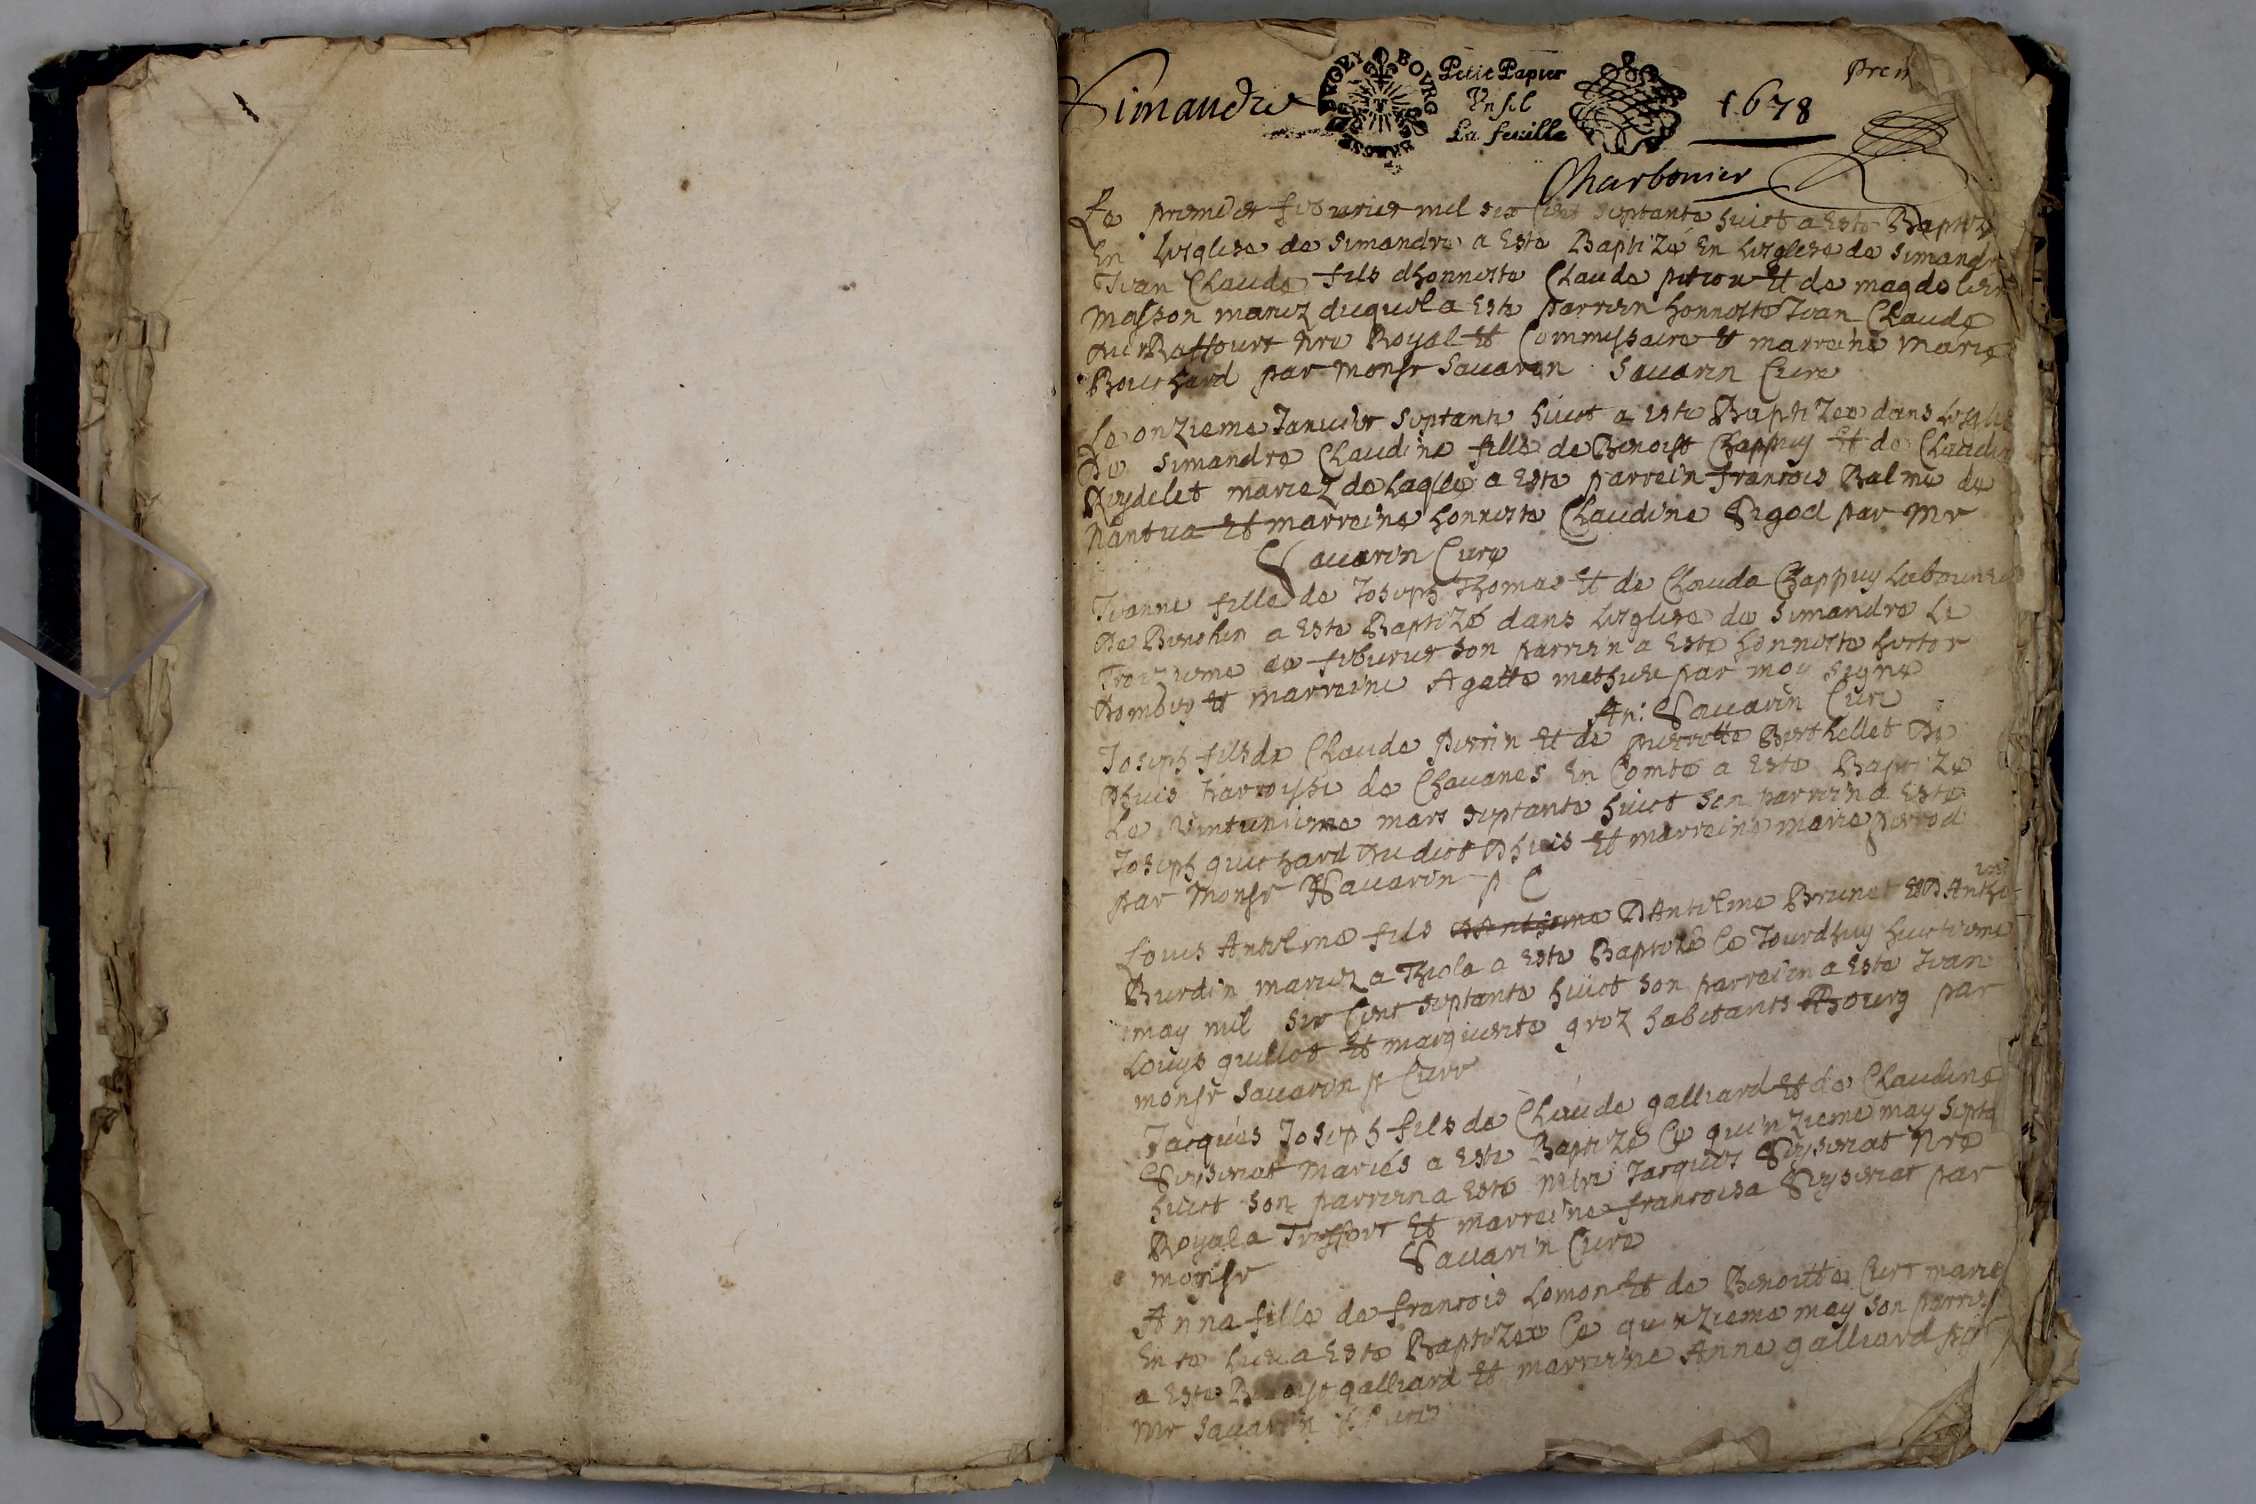 Simandre
BVGEY BOVRG
Petit Papier
Vn sol
La feuille
1678
prem
Charbonier
Le premier feburier mil six Cent septante huict a Esté Baptizé
En Lesglise de simandre a Este Baptizé En Lesglise de simandre
Jean Claude fils dhonneste Claude de magdelein
Masson mariez duquel a Este parrein honneste Jean Claude
Royal et Commissaire et marreine marie
Bouchard par monsr Savarin Savarin Cure
Le onzieme Januier septante huict a este Baptizee dans Lesglise
De simandre Claudine fille de Benoist Chappuy et de Claudin
Reydelet mariez de Laqlle a Este parrein francois Balme de
Nantua et marreine honneste Claudine Sigod par Mr
Savarin Cure
Jeanne fille de Joseph Thomas et de Clauda Chappuy
De a Este Baptizé dans Lesglise de simandre Le
Troizieme de feburier son parrein a Este honneste
et marreine Agatte par moy signe
An: Savarin Cure
Joseph fils de Claude perrin et de pierrette Berthellet De
Dhuis parroisse de Chavanes En Comte a Este Baptizé
Le vintunieme mars septante huict son parrein a Este
Joseph guichard dudict Dhuis et marreine marie perrod
par Monsr Savarin p C
Louis Antelme fils DAntelme Brunet et DAnthe
Burdin mariez a a Este Baptizé Ce Jourdhuy huictieme
may mil six Cent septante huict son parrein a Este Jean
Louys guillot et marguerite groz habitants Bourg par
monsr Savarin p Cure
Jacques Joseph fils de Claude galliard et de Claudine
Seyseriat mariés a Este Baptizé Ce quinzieme may septa
huict son parrein a Este Jacques Seyseriat Nre
Royal a Treffort et marreine francoisa Seyseriat par
monsr Savarin Cure
Anna fille de francois Lomon et de Benoitte Curt marie
En ce Lieu a Este Baptizee Ce quinzieme may son parrein
a Este Benoist galliard et marreine Anne galliard par
Mr Savarin